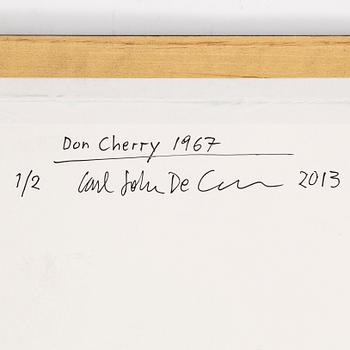 Don Cherry 1967
1/2 Carl Johan De Geer 2013